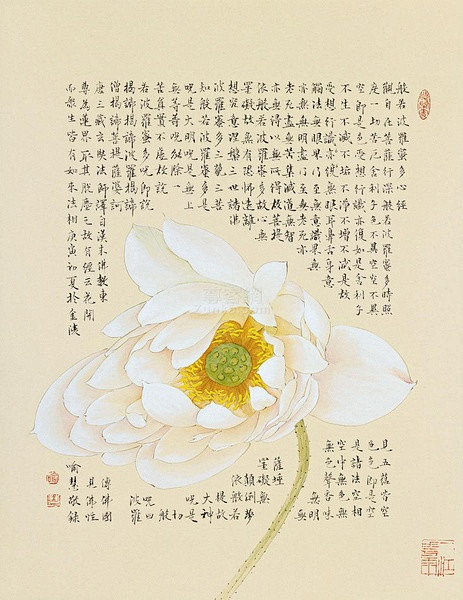 般若波羅蜜多心經
觀自在菩薩行深般若波羅蜜多時照
見五蘊皆空
度一切苦厄舍利子色不異空空不異
色色即是空
空即是色受想行識亦復如是舍利子
是諸法空相
不生不滅不垢不淨不增不減是故
空中無色無
受想行識無眼耳鼻舌身意
無色聲香味
觸法無眼界乃至無意識界無
無明
亦無無明盡乃至無老死亦
無
老死盡無苦集滅道無智
亦無得以無所得故菩提
薩埵
依般若波羅蜜多故心無
罣礙無
罣礙故無有恐怖遠離
顛倒夢
想究竟涅槃三世諸佛
依般若
波羅蜜多三藐三菩
提故
知般若波羅蜜多是
大神
咒是大明咒是無上
咒是
無等等咒能除一
切
苦真實不虛故說
般
若波羅蜜多咒即說
咒曰
揭諦揭諦波羅揭諦
波羅
僧揭諦菩提薩婆訶
唐三藏玄奘法師譯自漢末佛教東
傳佛國
尊為蓮界取其花開
見佛性
而眾生皆有如來法相庚寅初夏於金陵
喻慧敬錄